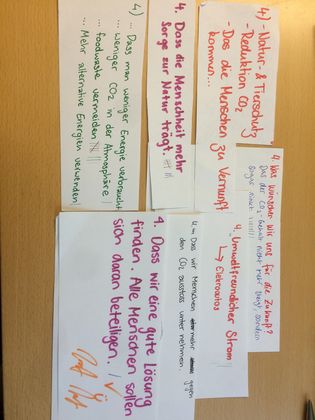 4) ... Dass man weniger Energie verbraucht
... weniger CO2 in der Atmosphäre!
... foodwaste vermeiden
... Mehr alternative Energien verwenden
4. Dass die Menschheit mehr
Sorge zur Natur trägt
4) - Natur- & Tierschutz
- Reduktion CO2
- Das die Menschen zu Vernunft
kommen...
4. Was wünschen wir uns für die Zukunft?
Das der CO2-Gehalt nicht mehr steigt, sondern
sogar sinkt
4. Umweltfreundlicher Strom
↳ Elektroautos
4. - Das wir Menschen mehr gegen
den CO2 ausstoss unternehmen.
4. Dass wir eine gute Lösung
finden. Alle Menschen sollen
sich daran beteiligen.